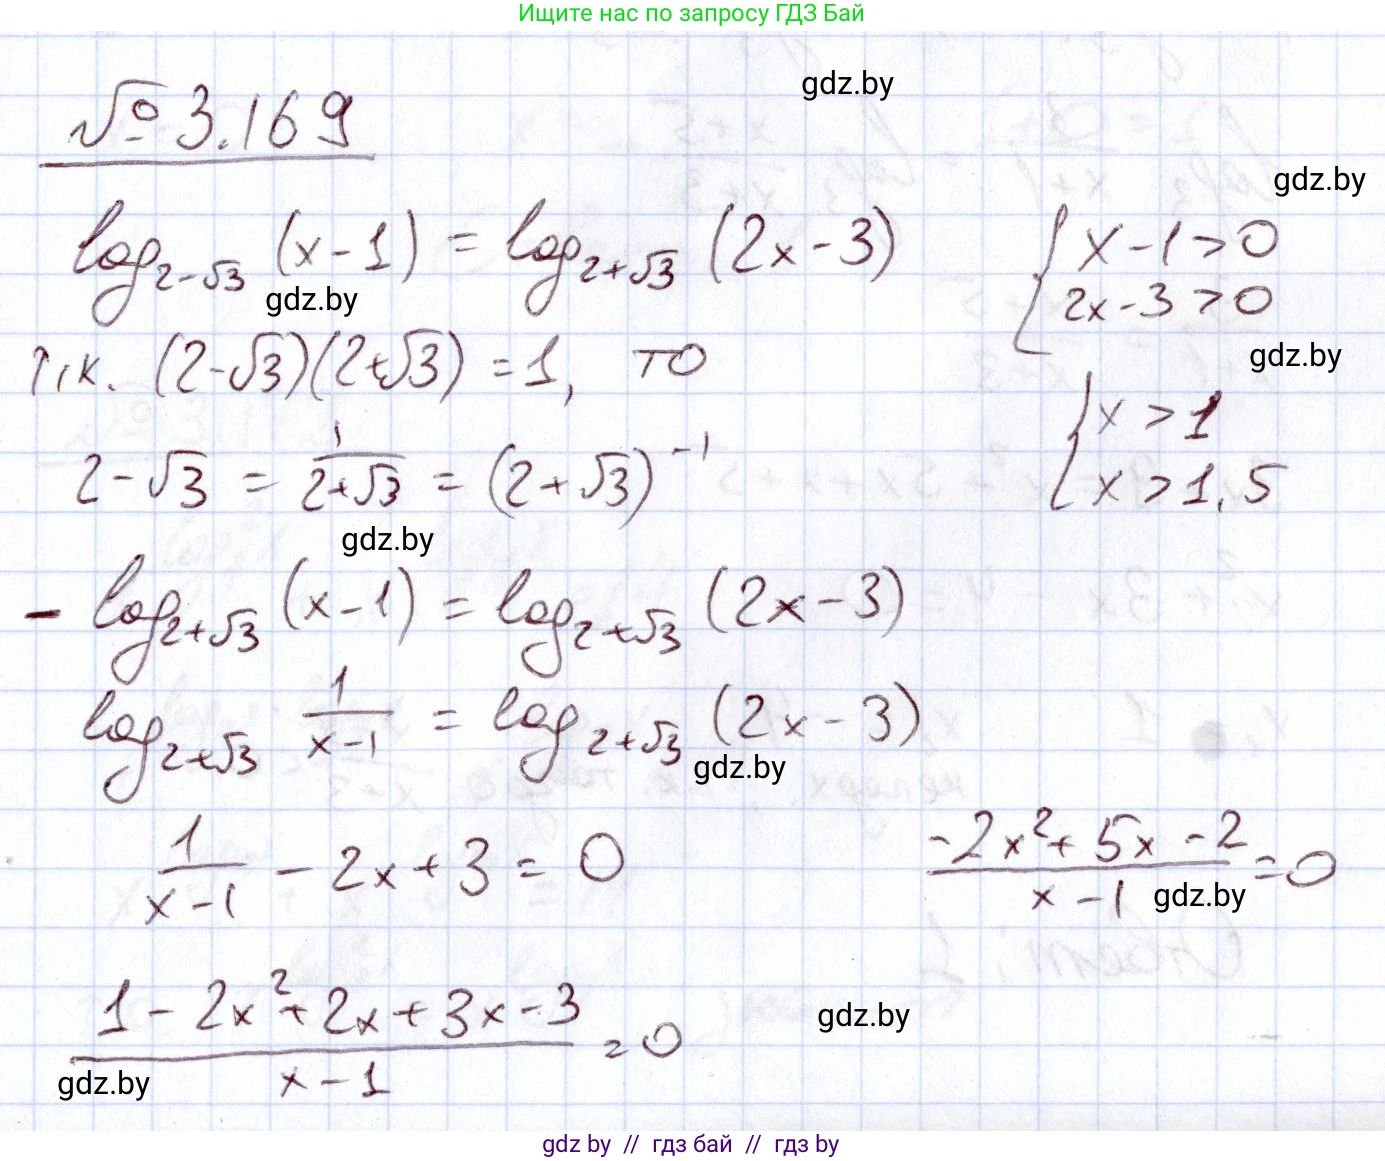 Ищите нас по запросу ГДЗ Бай
gdz.by
№ 3.169
gdz.by
log_{2-√3} (x-1) = log_{2+√3} (2x-3)
{ x-1>0
2x-3>0
gdz.by
т.к. (2-√3)(2+√3) = 1, то
gdz.by
{ x > 1
x > 1,5
2-√3 = 1/(2+√3) = (2+√3)^{-1}
gdz.by
- log_{2+√3} (x-1) = log_{2+√3} (2x-3)
log_{2+√3} 1/(x-1) = log_{2+√3} (2x-3)
gdz.by
1/(x-1) - 2x + 3 = 0
(-2x²+5x-2)/(x-1) = 0
gdz.by
(1-2x²+2x+3x-3)/(x-1) = 0
gdz.by
gdz.by
gdz by // гдз бай // гдз by